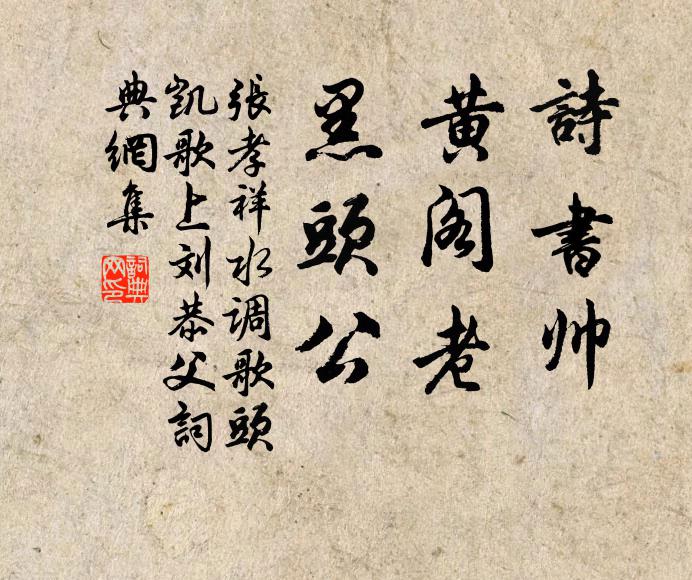 詩書帅
黄阁老
黑頭公
張孝祥水调歌頭
凱歌上刘恭父詞
典網集
詞典网印